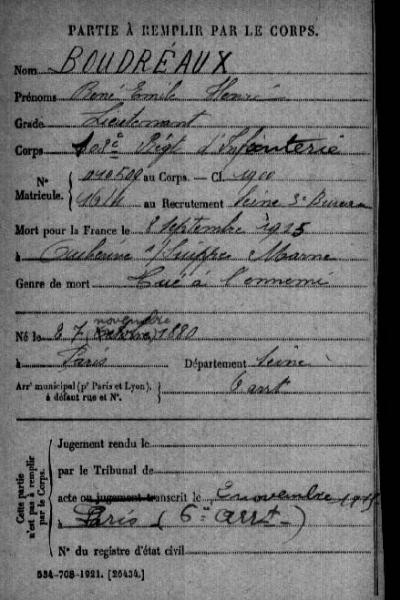 PARTIE À REMPLIR PAR LE CORPS.
Nom BOUDRÉAUX
Prénoms René Emile Henri
Grade Lieutenant
Corps 103e Régt d'Infanterie
N° Matricule. 010500 au Corps. — Cl. 1900
1614 au Recrutement Seine 3e Bureau
Mort pour la France le 8 septembre 1925
à s/Suippe Marne
Genre de mort Tué à l'ennemi
novembre
Né le 7 1880
à Paris Département Seine
Arrt municipal (pr Paris et Lyon), à défaut rue et N°. 6 arrt
Cette partie n'est pas à remplir par le Corps.
Jugement rendu le
par le Tribunal de
acte ou jugement transcrit le novembre 1915
à Paris (6me arrt)
N° du registre d'état civil
534-708-1921. [26434.]